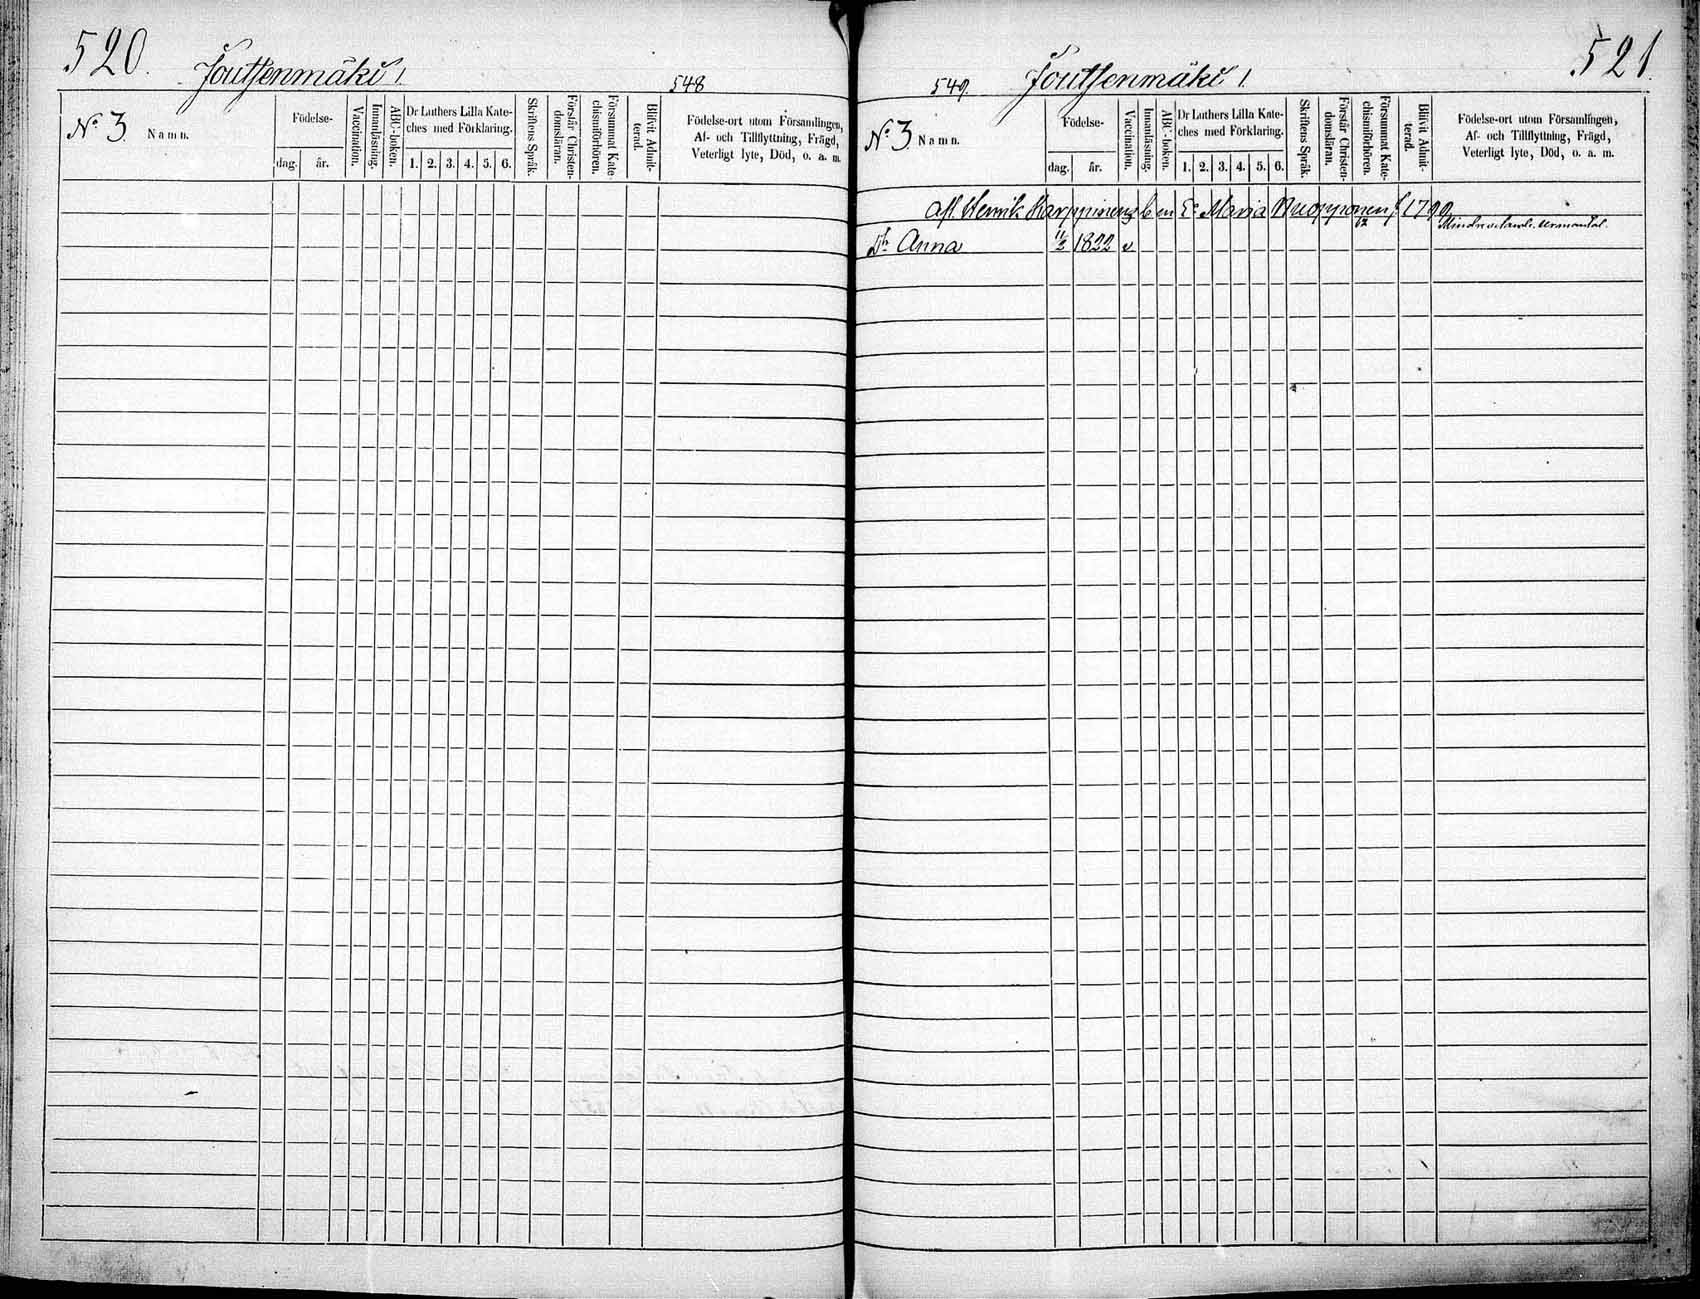 520.
Joutsenmäki 1
548
No 3
Namn.
Födelse-
dag. år.
Vaccination.
Innanläsning.
ABC-boken.
Dr Luthers Lilla Kate-
ches med Förklaring.
1. 2. 3. 4. 5. 6.
Skriftens Språk.
Förstår Christen-
domsläran.
Försummat Kate-
chismiförhören.
Blifvit Admit-
terad.
Födelse-ort utom Församlingen,
Af- och Tillflyttning, Frägd,
Veterligt lyte, Död, o. a. m.
521.
549.
Joutsenmäki 1.
No 3
Namn.
Födelse-
dag. år.
Vaccination.
Innanläsning.
ABC-boken.
Dr Luthers Lilla Kate-
ches med Förklaring.
1. 2. 3. 4. 5. 6.
Skriftens Språk.
Förstår Christen-
domsläran.
Försummat Kate-
chismiförhören.
Blifvit Admit-
terad.
Födelse-ort utom Församlingen,
Af- och Tillflyttning, Frägd,
Veterligt lyte, Död, o. a. m.
Afl. Henrik Karppinens b m Ea Maria Nuopponen f 1799
Dr Anna 11/3 1822 v